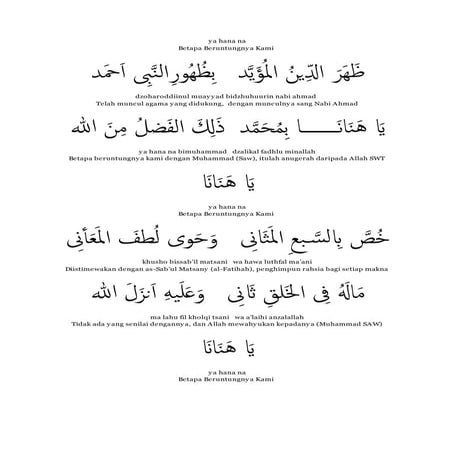 ya hana na
Betapa Beruntungnya Kami
ظَهَرَ الدِّينُ المُؤَيَّد بِظُهُورِالنَّبِى اَحمَد
dzoharoddiinul muayyad bidzhuhuurin nabi ahmad
Telah muncul agama yang didukung, dengan munculnya sang Nabi Ahmad
يَا هَنَانَـــــا بِمُحَمَّد ذَلِكَ الفَضلُ مِنَ الله
ya hana na bimuhammad dzalikal fadhlu minallah
Betapa beruntungnya kami dengan Muhammad (Saw), itulah anugerah daripada Allah SWT
يَا هَنَانَا
ya hana na
Betapa Beruntungnya Kami
خُصَّ بِالسَّبعِ المَثَانِى وَحَوى لُطفَ المَعَأنِى
khusho bissab'il matsani wa hawa luthfal ma'ani
Diistimewakan dengan as-Sab'ul Matsany (al-Fatihah), penghimpun rahsia bagi setiap makna
مَالَهُ فِى الخَلقِ ثَانِى وَعَلَيهِ اَنزَلَ الله
ma lahu fil kholqi tsani wa a'laihi anzalallah
Tidak ada yang senilai dengannya, dan Allah mewahyukan kepadanya (Muhammad SAW)
يَا هَنَانَا
ya hana na
Betapa Beruntungnya Kami